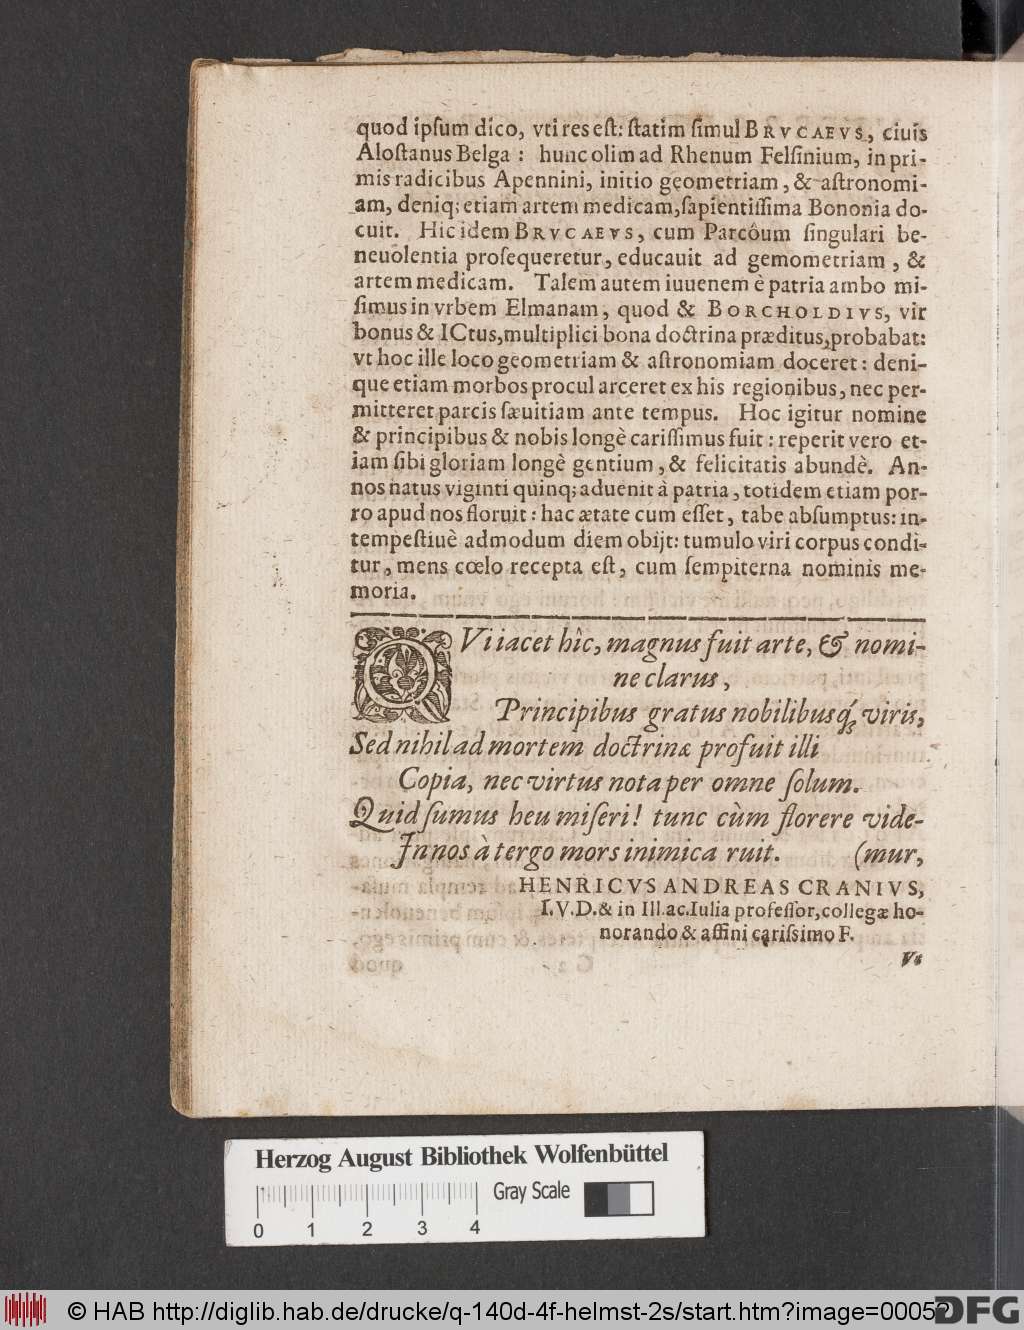 quod ipſum dico, vti res eſt: ſtatim ſimul BRVCAEVS, ciuis
Aloſtanus Belga: hunc olim ad Rhenum Felſinium, in pri-
mis radicibus Apennini, initio geometriam, & aſtronomi-
am, deniq; etiam artem medicam, ſapientiſſima Bononia do-
cuit. Hic idem BRVCAEVS, cum Parcôum ſingulari be-
neuolentia proſequeretur, educauit ad gemometriam, &
artem medicam. Talem autem iuuenem è patria ambo mi-
ſimus in vrbem Elmanam, quod & BORCHOLDIVS, vir
bonus & ICtus, multiplici bona doctrina præditus, probabat:
vt hoc ille loco geometriam & aſtronomiam doceret: deni-
que etiam morbos procul arceret ex his regionibus, nec per-
mitteret parcis ſæuitiam ante tempus. Hoc igitur nomine
& principibus & nobis longè cariſſimus fuit: reperit vero et-
iam ſibi gloriam longè gentium, & felicitatis abundè. An-
nos natus viginti quinq; aduenit à patria, totidem etiam por-
ro apud nos floruit: hac ætate cum eſſet, tabe abſumptus: in-
tempeſtiuè admodum diem obijt: tumulo viri corpus condi-
tur, mens cœlo recepta eſt, cum ſempiterna nominis me-
moria.
QVi iacet hîc, magnus fuit arte, & nomi-
ne clarus,
Principibus gratus nobilibusq́; viris,
Sed nihil ad mortem doctrinæ profuit illi
Copia, nec virtus nota per omne ſolum.
Quid ſumus heu miſeri! tunc cùm florere vide-
In nos à tergo mors inimica ruit. (mur,
HENRICVS ANDREAS CRANIVS,
I.V.D. & in Ill. ac. Iulia profeſſor, collegæ ho-
norando & affini cariſsimo F.
Vt
Herzog August Bibliothek Wolfenbüttel
Gray Scale
0 1 2 3 4
© HAB http://diglib.hab.de/drucke/q-140d-4f-helmst-2s/start.htm?image=00052
DFG